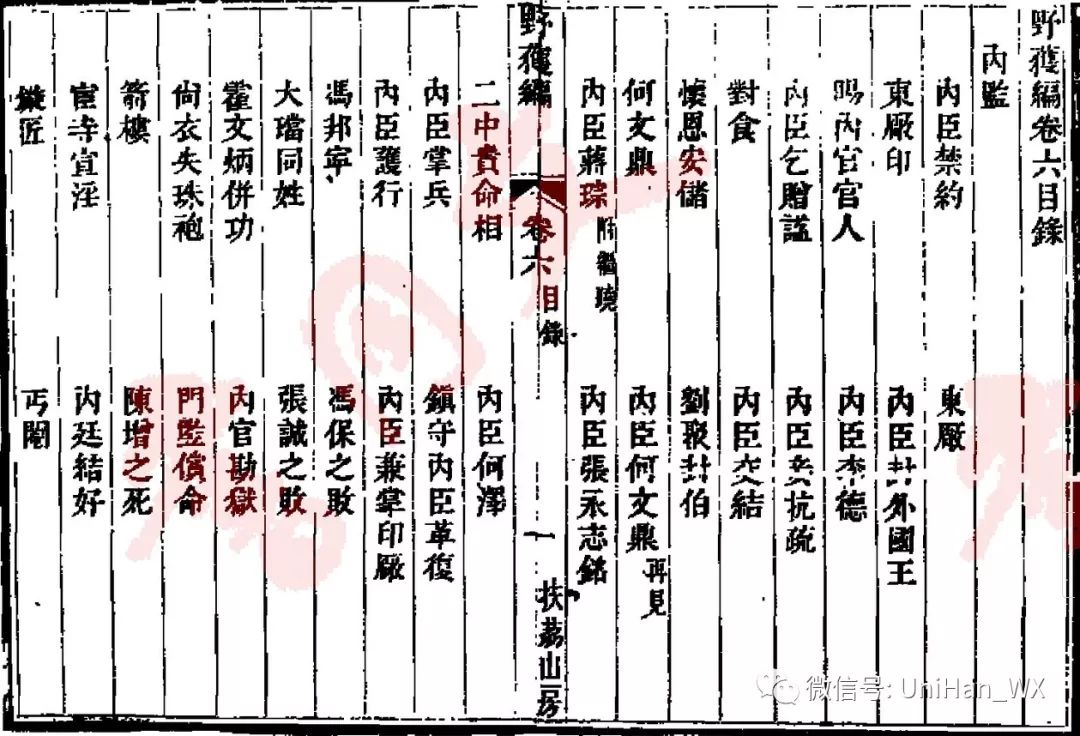 野獲編卷六目錄
內監
內臣禁約 東厰
東厰印 內臣封外國王
賜內官宮人 內臣李德
內臣乞贈謚 內臣妄抗疏
對食 內臣交結
懷恩安儲 劉聚封伯
何文鼎 內臣何文鼎再見
內臣蔣琮附繼曉 內臣張永志銘
野獲編 卷六目錄 一 扶荔山房
二中貴命相 內臣何澤
內臣掌兵 鎮守內臣革復
內臣護行 內臣兼掌印厰
馮邦寧 馮保之敗
大璫同姓 張誠之敗
霍文炳併功 內官勘獄
尚衣失珠袍 門監償命
箭樓 陳增之死
宦寺宣淫 內廷結好
鏇匠 丐閹
微信号: UniHan_WX